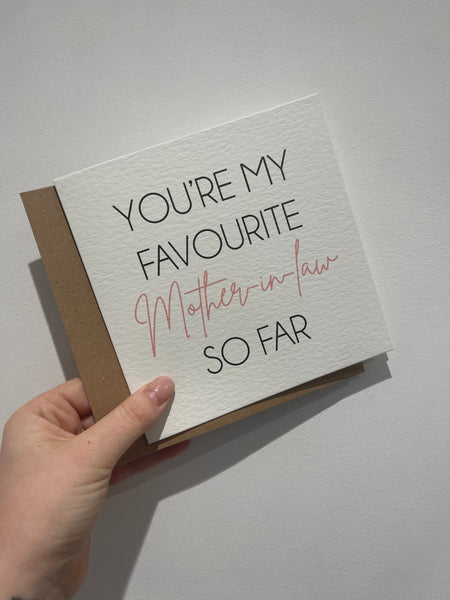 YOU'RE MY
FAVOURITE
Mother-in-law
SO FAR